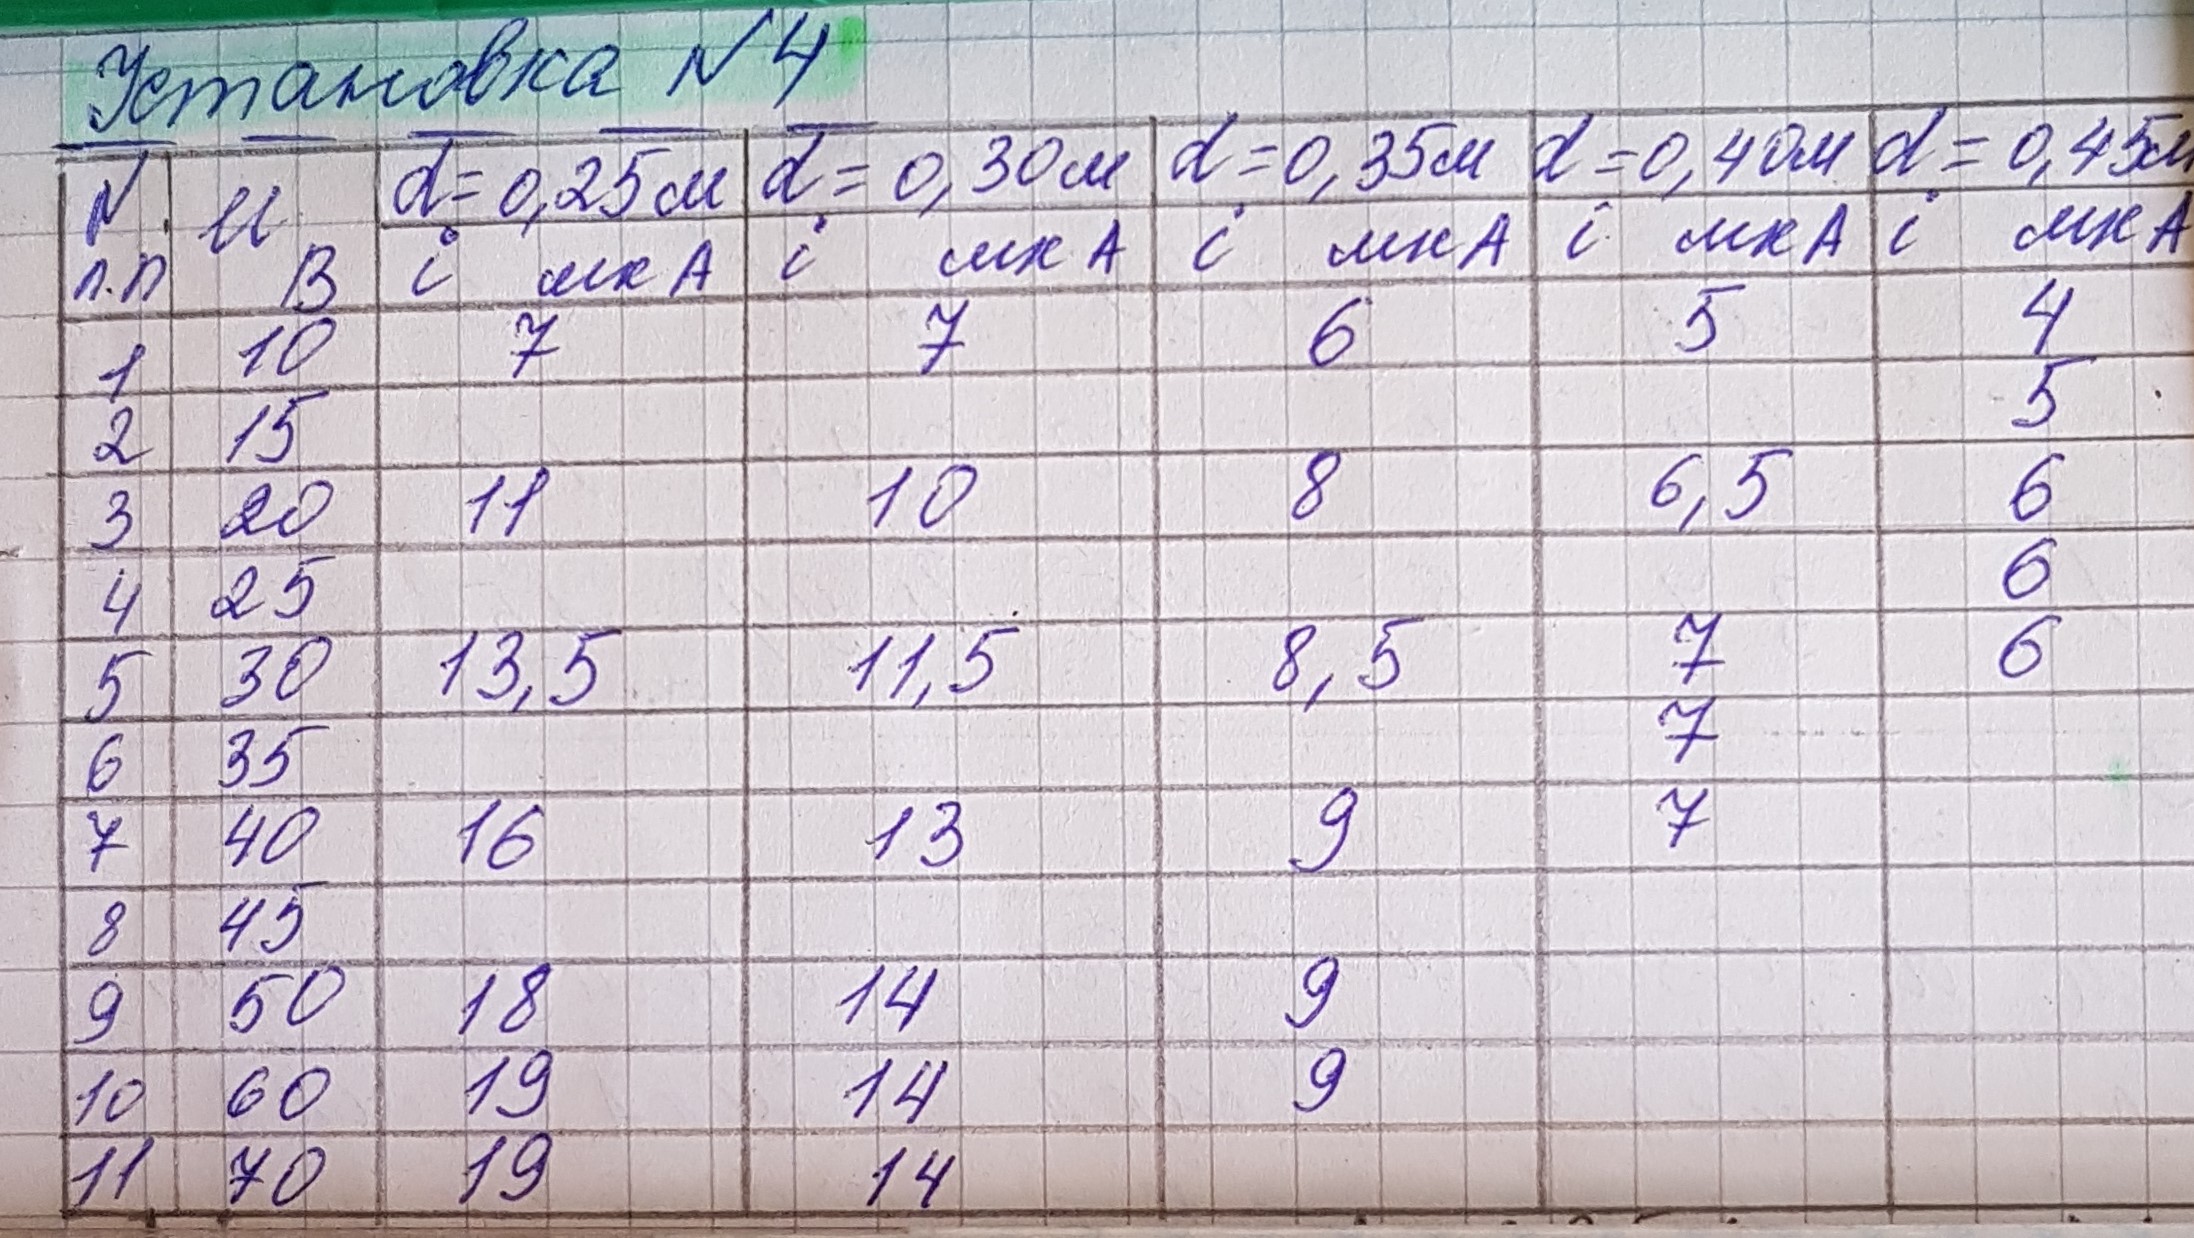 Установка N4
N п.п U В d=0,25м d=0,30м d=0,35м d=0,40м d=0,45м
i мкА i мкА i мкА i мкА i мкА
1 10 7 7 6 5 4
2 15 5
3 20 11 10 8 6,5 6
4 25 6
5 30 13,5 11,5 8,5 7 6
6 35 7
7 40 16 13 9 7
8 45
9 50 18 14 9
10 60 19 14 9
11 70 19 14